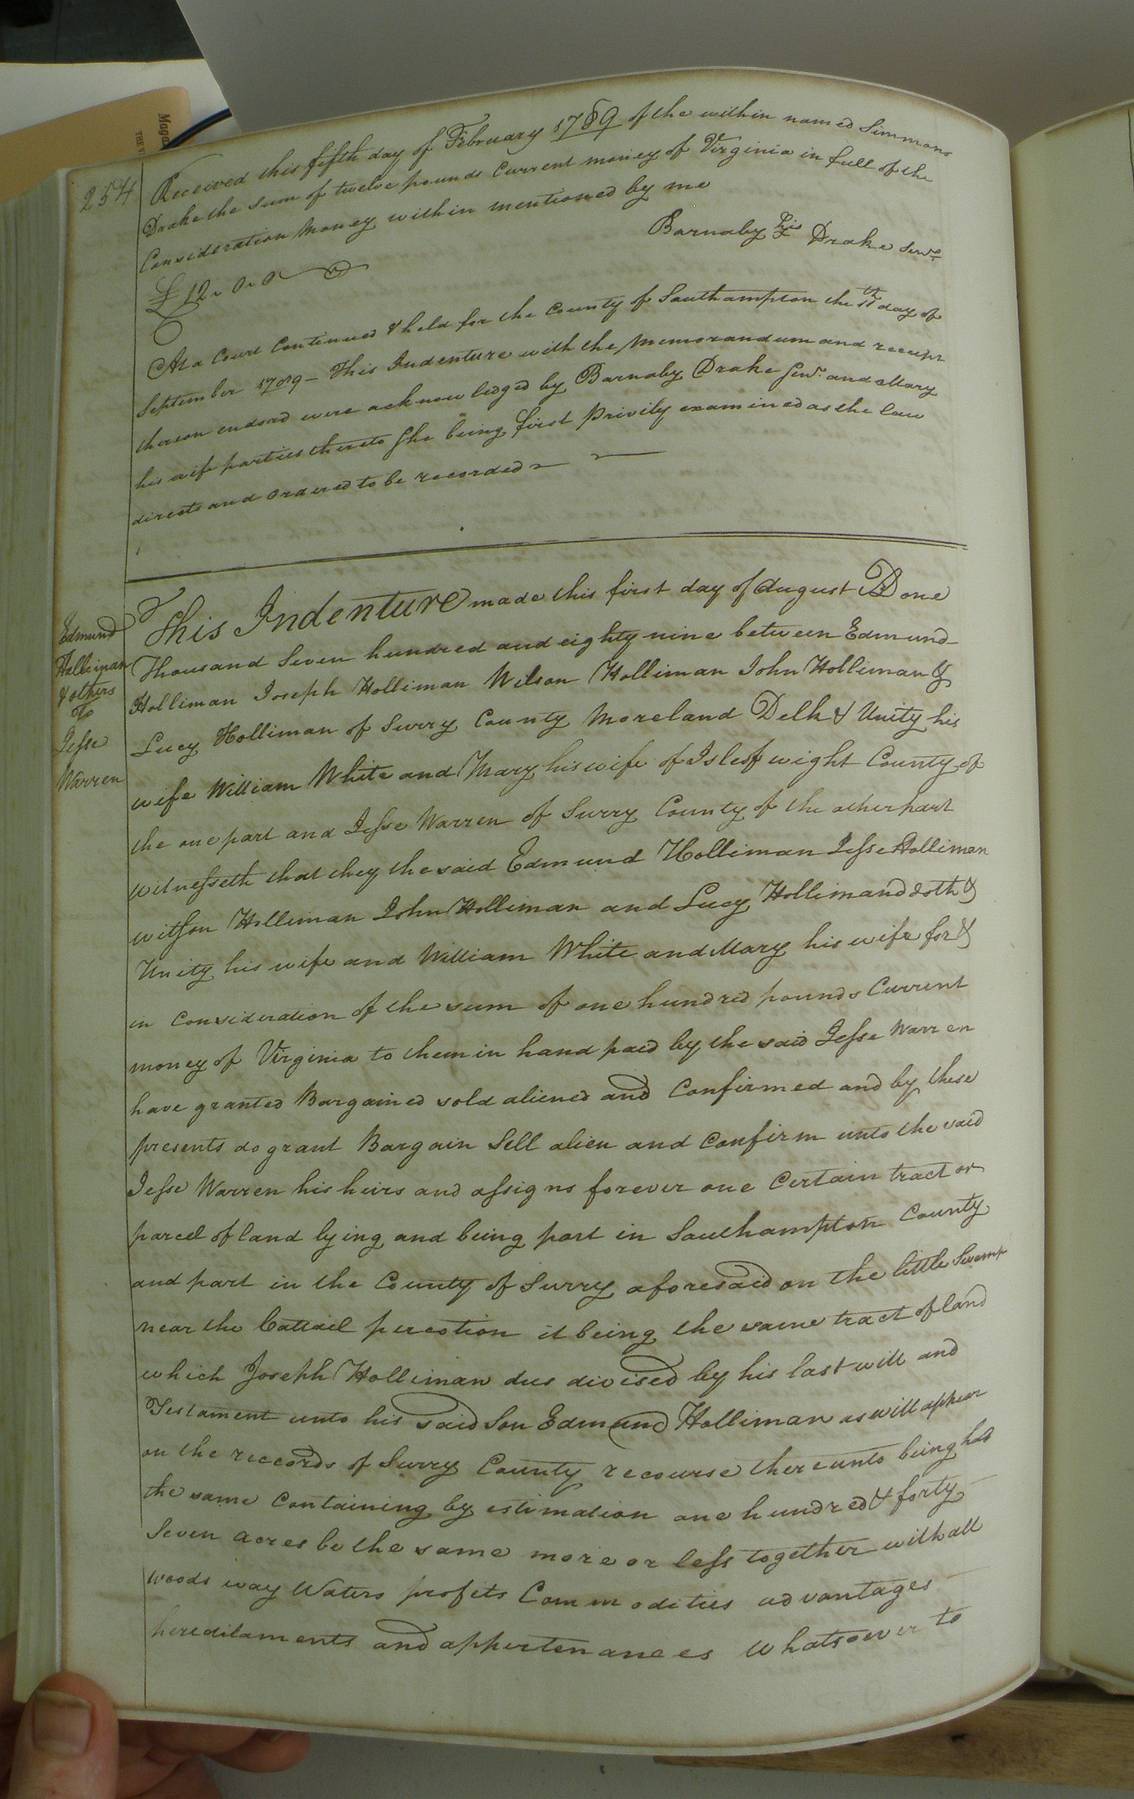 254
Received this fifth day of February 1789 of the within named Simmons
Drake the sum of twelve pounds Current money of Virginia in full of the
Consideration money within mentioned by me
Barnaby his Drake Senr
£12. 0. 0
At a Court Continued & held for the County of Southampton the 11th day of
September 1789 – This Indenture with the memorandum and receipt
thereon endorsd were acknowledged by Barnaby Drake Senr. and Mary
his wife parties thereto she being first Privily examined as the law
directs and ordered to be recorded
Edmund
Holliman
& others
To
Jesse
Warren
This Indenture made this first day of August D one
Thousand Seven hundred and eighty nine between Edmund
Holliman Joseph Holliman Wilson Holliman John Holliman &
Lucy Holliman of Surry County Moreland Delk & Unity his
wife William White and Mary his wife of Isle of wight County of
the one part and Jesse Warren of Surry County of the other part
witnesseth that they the said Edmund Holliman Jesse Holliman
witson Holliman John Holliman and Lucy Holliman doth &
Unity his wife and William White and Mary his wife for &
in Consideration of the sum of one hundred pounds Current
money of Virginia to them in hand paid by the said Jesse Warren
have granted Bargained sold aliened and Confirmed and by these
presents do grant Bargain Sell alien and Confirm unto the said
Jesse Warren his heirs and assigns forever one Certain tract or
parcel of land lying and being part in Southampton County
and part in the County of Surry aforesaid on the little Swamp
near the Cattail it being the same tract of land
which Joseph Holliman dus divised by his last will and
Testament unto his said Son Edmund Holliman as will appear
on the records of Surry County recourse thereunto being had
the same Containing by estimation one hundred & forty
Seven acres be the same more or less together with all
woods way Waters profits Commodities advantages
hereditaments and appertenances whatsoever to